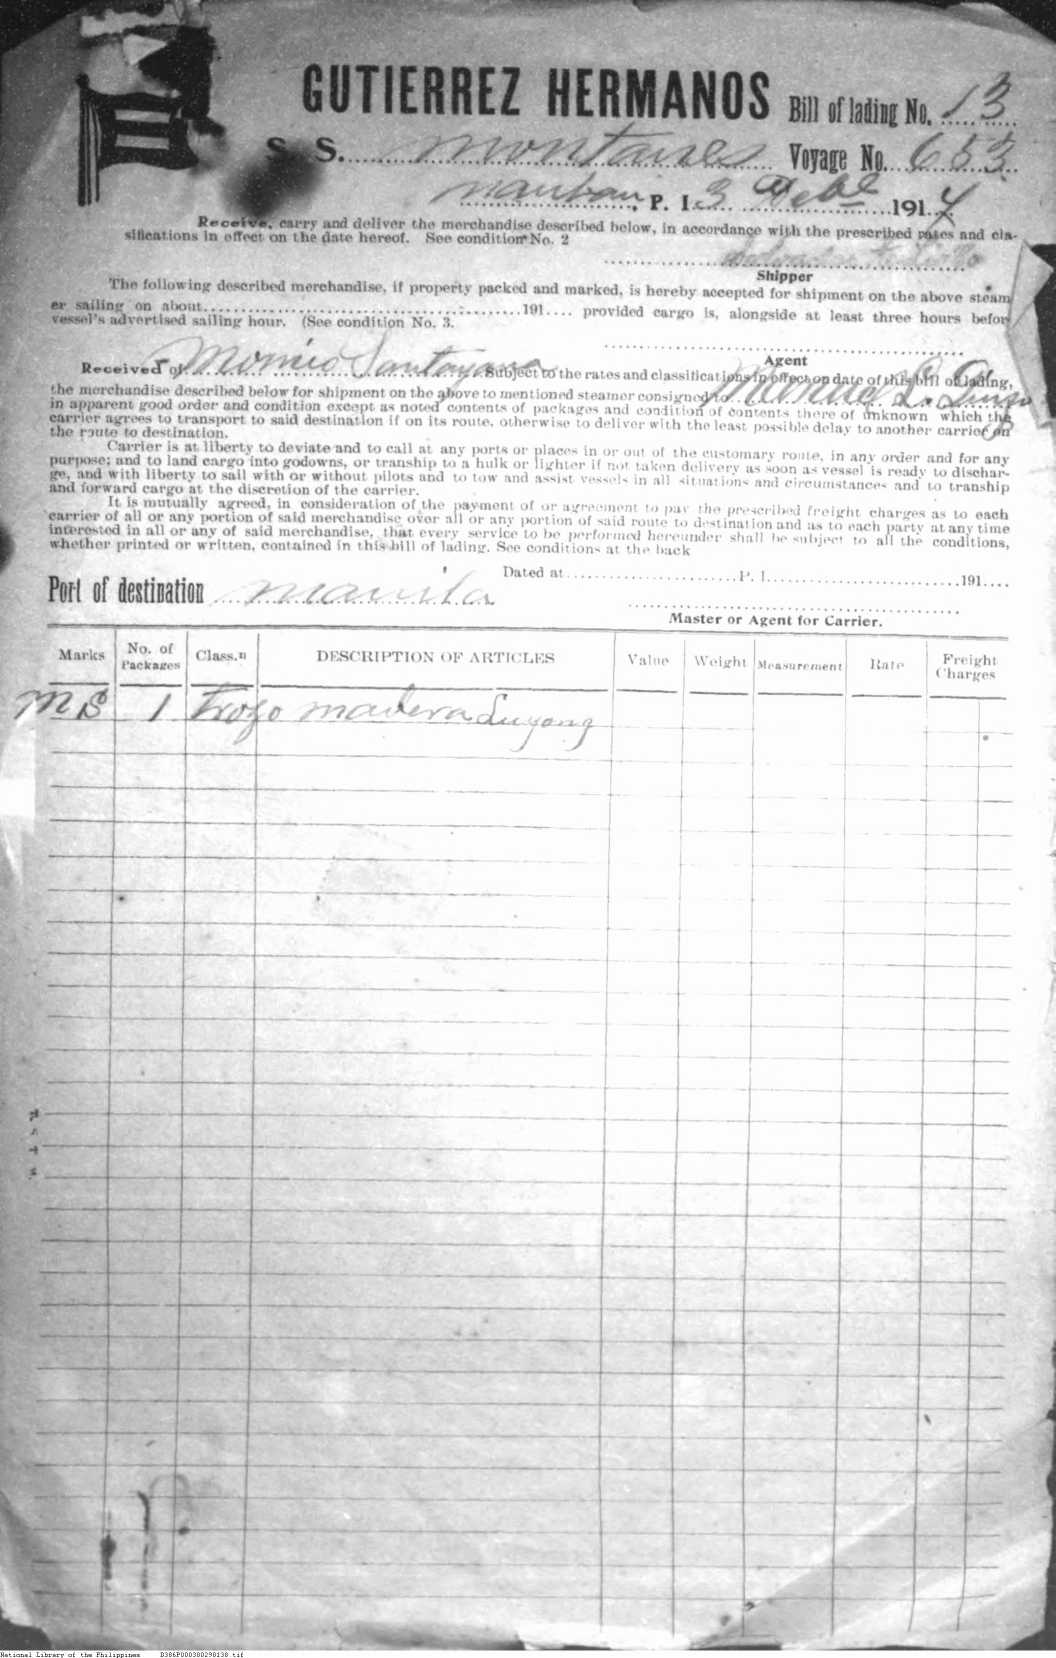 GUTIERREZ HERMANOS
Bill of lading No. 13
S. S. Montañes Voyage No. 653
Mauban, P. I. 3 Feb. 1914
Receive, carry and deliver the merchandise described below, in accordance with the prescribed rates and cla-
sifications in effect on the date hereof. See condition No. 2
Shipper
The following described merchandise, if property packed and marked, is hereby accepted for shipment on the above steam
er sailing on about 191.... provided cargo is, alongside at least three hours befor
vessel's advertised sailing hour. (See condition No. 3.
Agent
Received of Santayana Subject to the rates and classifications in effect on date of this bill of lading,
the merchandise described below for shipment on the above to mentioned steamer consigned to
in apparent good order and condition except as noted contents of packages and condition of contents there of unknown which the
carrier agrees to transport to said destination if on its route, otherwise to deliver with the least possible delay to another carrier on
the route to destination.
Carrier is at liberty to deviate and to call at any ports or places in or out of the customary route, in any order and for any
purpose; and to land cargo into godowns, or tranship to a hulk or lighter if not taken delivery as soon as vessel is ready to dischar-
ge, and with liberty to sail with or without pilots and to tow and assist vessels in all situations and circumstances and to tranship
and forward cargo at the discretion of the carrier.
It is mutually agreed, in consideration of the payment of or agreement to pay the prescribed freight charges as to each
carrier of all or any portion of said merchandise over all or any portion of said route to destination and as to each party at any time
interested in all or any of said merchandise, that every service to be performed hereunder shall be subject to all the conditions,
whether printed or written, contained in this bill of lading. See conditions at the back
Dated at P. I. 191....
Port of destination Manila
Master or Agent for Carrier.
Marks No. of Packages Class.n DESCRIPTION OF ARTICLES Value Weight Measurement Rate Freight Charges
MS 1 trozo madera Luyong
National Library of the Philippines B386P000380298138.tif